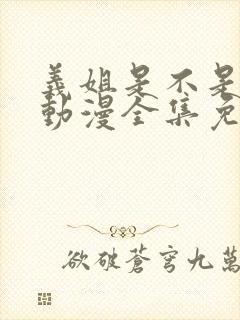 義姐是不是
動漫全集免
欲破蒼穹九萬